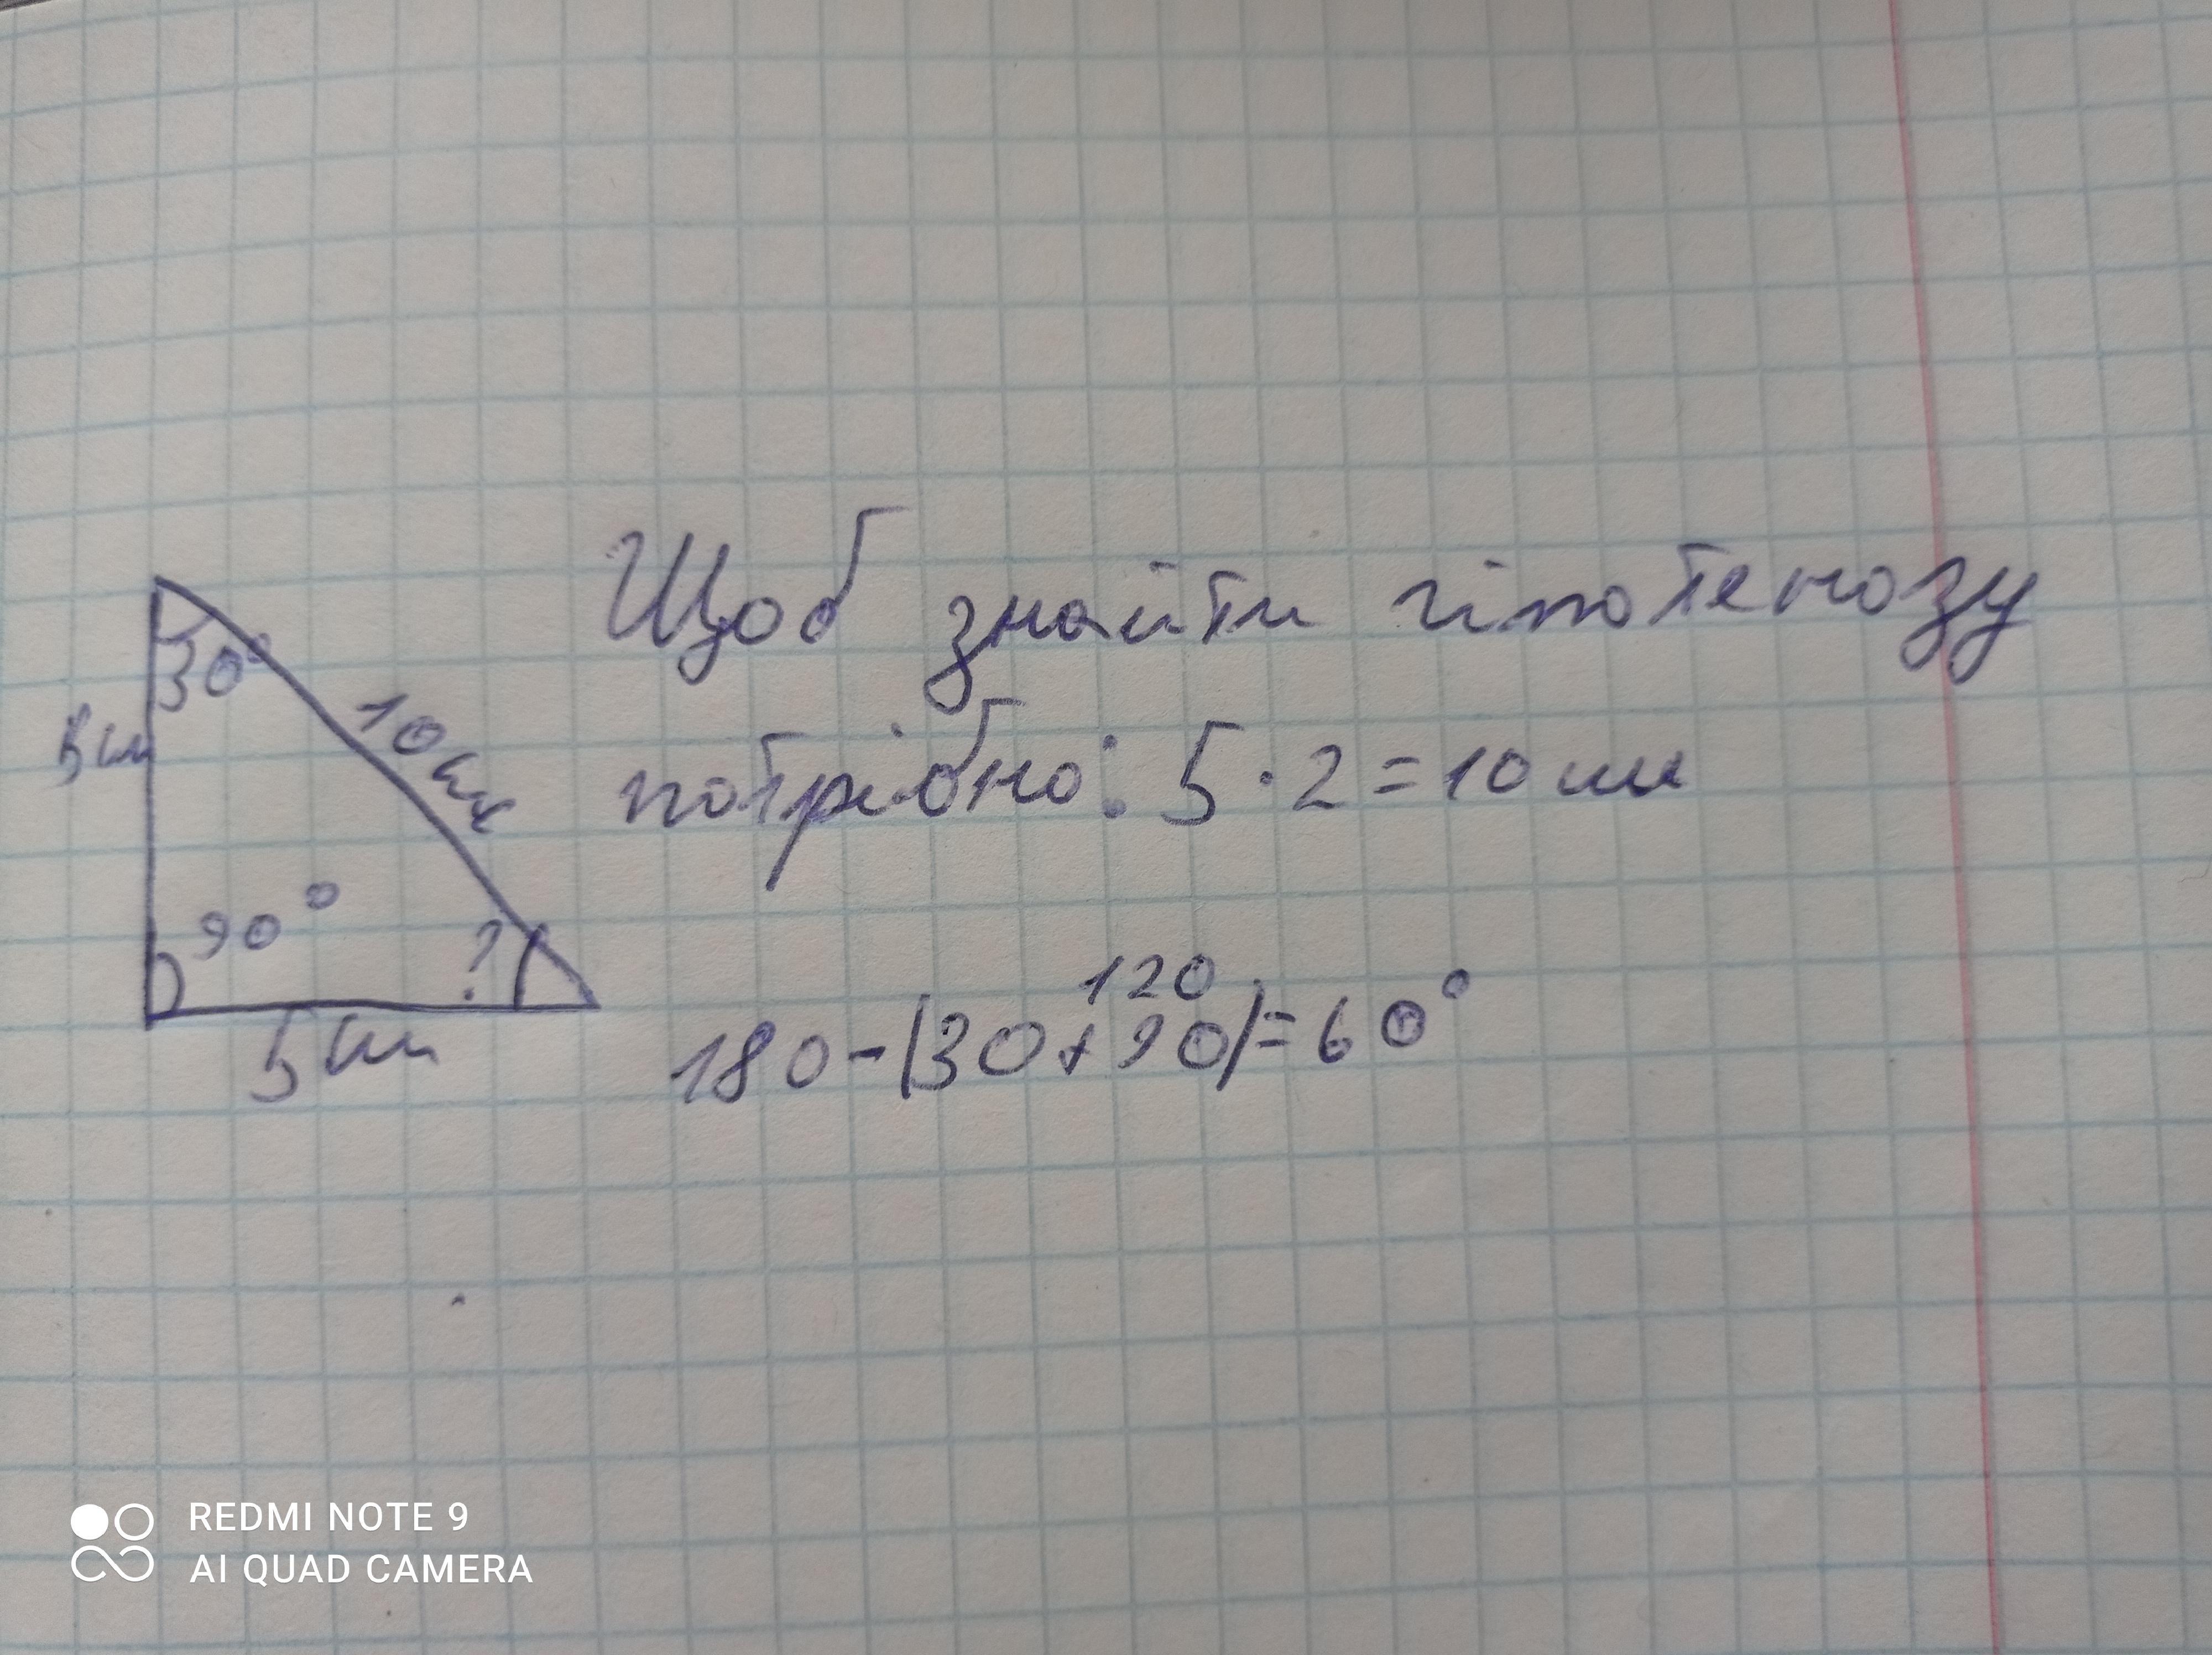 Щоб знайти гіпотенозу
потрібно: 5·2=10 см
30°
5см
10см
90°
?
5см
120
180-(30+90)=60°
REDMI NOTE 9
AI QUAD CAMERA